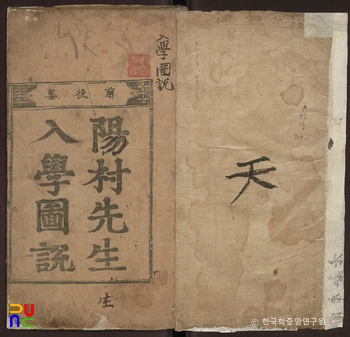 入學圖說
前後集
陽村先生
入學圖說
生
天
© 한국학중앙연구원